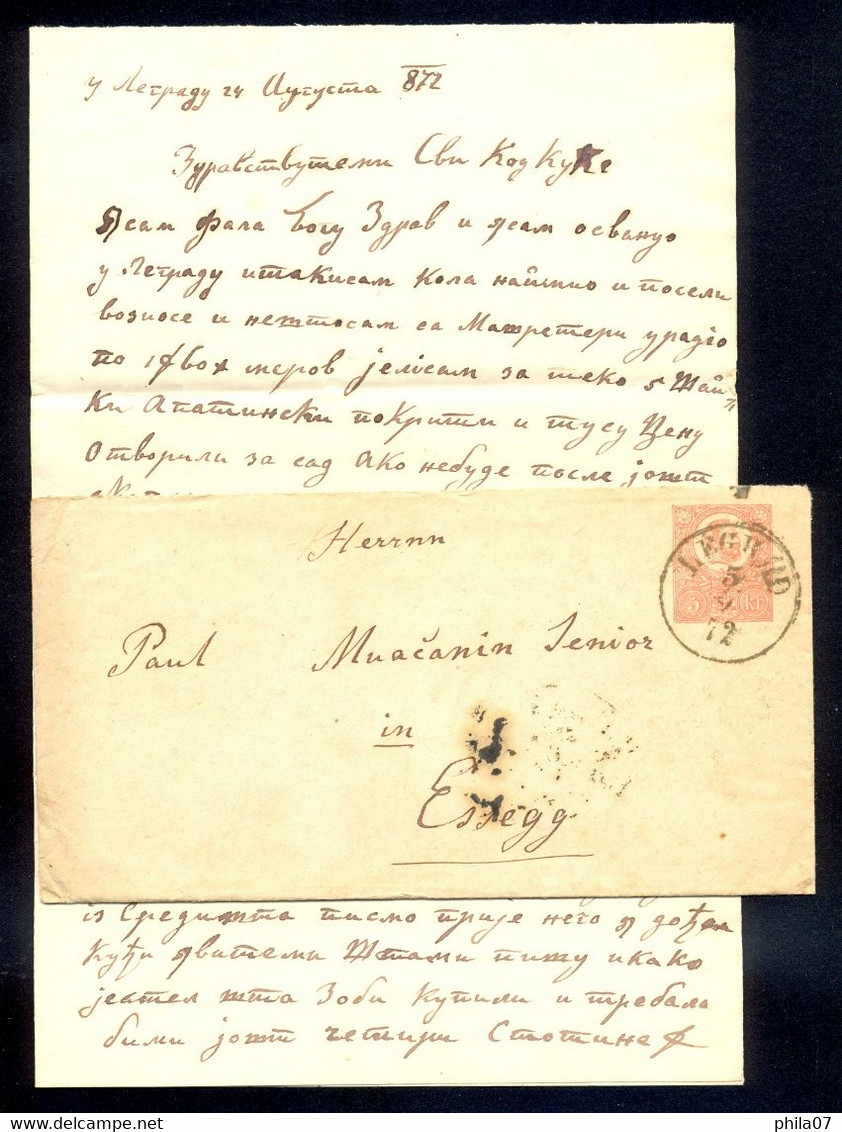 у Леграду 24 Аугуста 872
Здравствутеми Сви Код Куће
Ясам фала Богу Здрав и ясам освануо
у Леграду итакисам кола наймио и посели
возиосе и нештосам са урадіо
по меров јелісам за теко 5 Шай
ки Апатински покрити и тусу Цену
Отворили за сад Ако небуде после јошт
Herrnn
Paul Muačanin Senior
in
Essegg
LEGRÁD
5
9
72
5 KR
із Средишта писмо прије него я дођем
Кући явитеми Штами пишу икако
јеател шта Зоби купили и требала
бими јошт четири Стотине ф
phila07